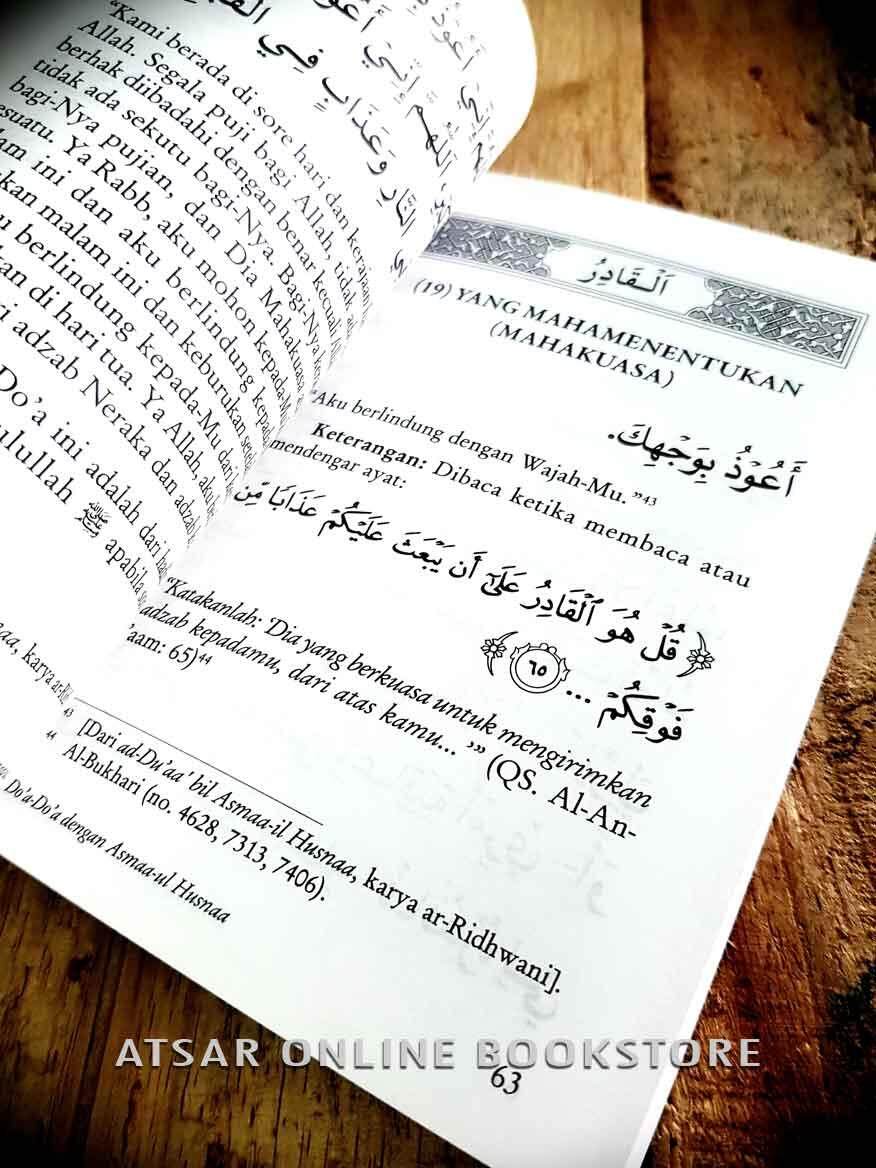 أَعُوْذُ
إِنِّيْ أَعُوْذُ
اللَّهُمَّ إِنِّيْ
النَّارِ وَعَذَابٍ فِي
"Kami berada di sore hari dan kerajaan
Allah. Segala puji bagi Allah, tidak
berhak diibadahi dengan benar kecuali
tidak ada sekutu bagi-Nya. Bagi-Nya
bagi-Nya pujian, dan Dia Mahakuasa
Ya Rabb, aku mohon
ini dan aku berlindung
malam ini dan keburukan
berlindung kepada-Mu dari
di hari tua. Ya Allah,
adzab Neraka dan adzab
Do'a ini adalah dari
ﷺ apabila
karya
Do'a-Do'a dengan Asmaa-ul Husnaa
اَلْقَادِرُ
(19) YANG MAHAMENENTUKAN
(MAHAKUASA)
أَعُوْذُ بِوَجْهِكَ.
"Aku berlindung dengan Wajah-Mu."43
Keterangan: Dibaca ketika membaca atau
mendengar ayat:
﴿ قُلْ هُوَ ٱلْقَادِرُ عَلَىٰٓ أَن يَبْعَثَ عَلَيْكُمْ عَذَابًا مِّن
فَوْقِكُمْ ... ٦٥ ﴾
"Katakanlah: 'Dia yang berkuasa untuk mengirimkan
adzab kepadamu, dari atas kamu...'" (QS. Al-An-
'aam: 65)44
43 [Dari ad-Du'aa' bil Asmaa-il Husnaa, karya ar-Ridhwani].
44 Al-Bukhari (no. 4628, 7313, 7406).
63
ATSAR ONLINE BOOKSTORE